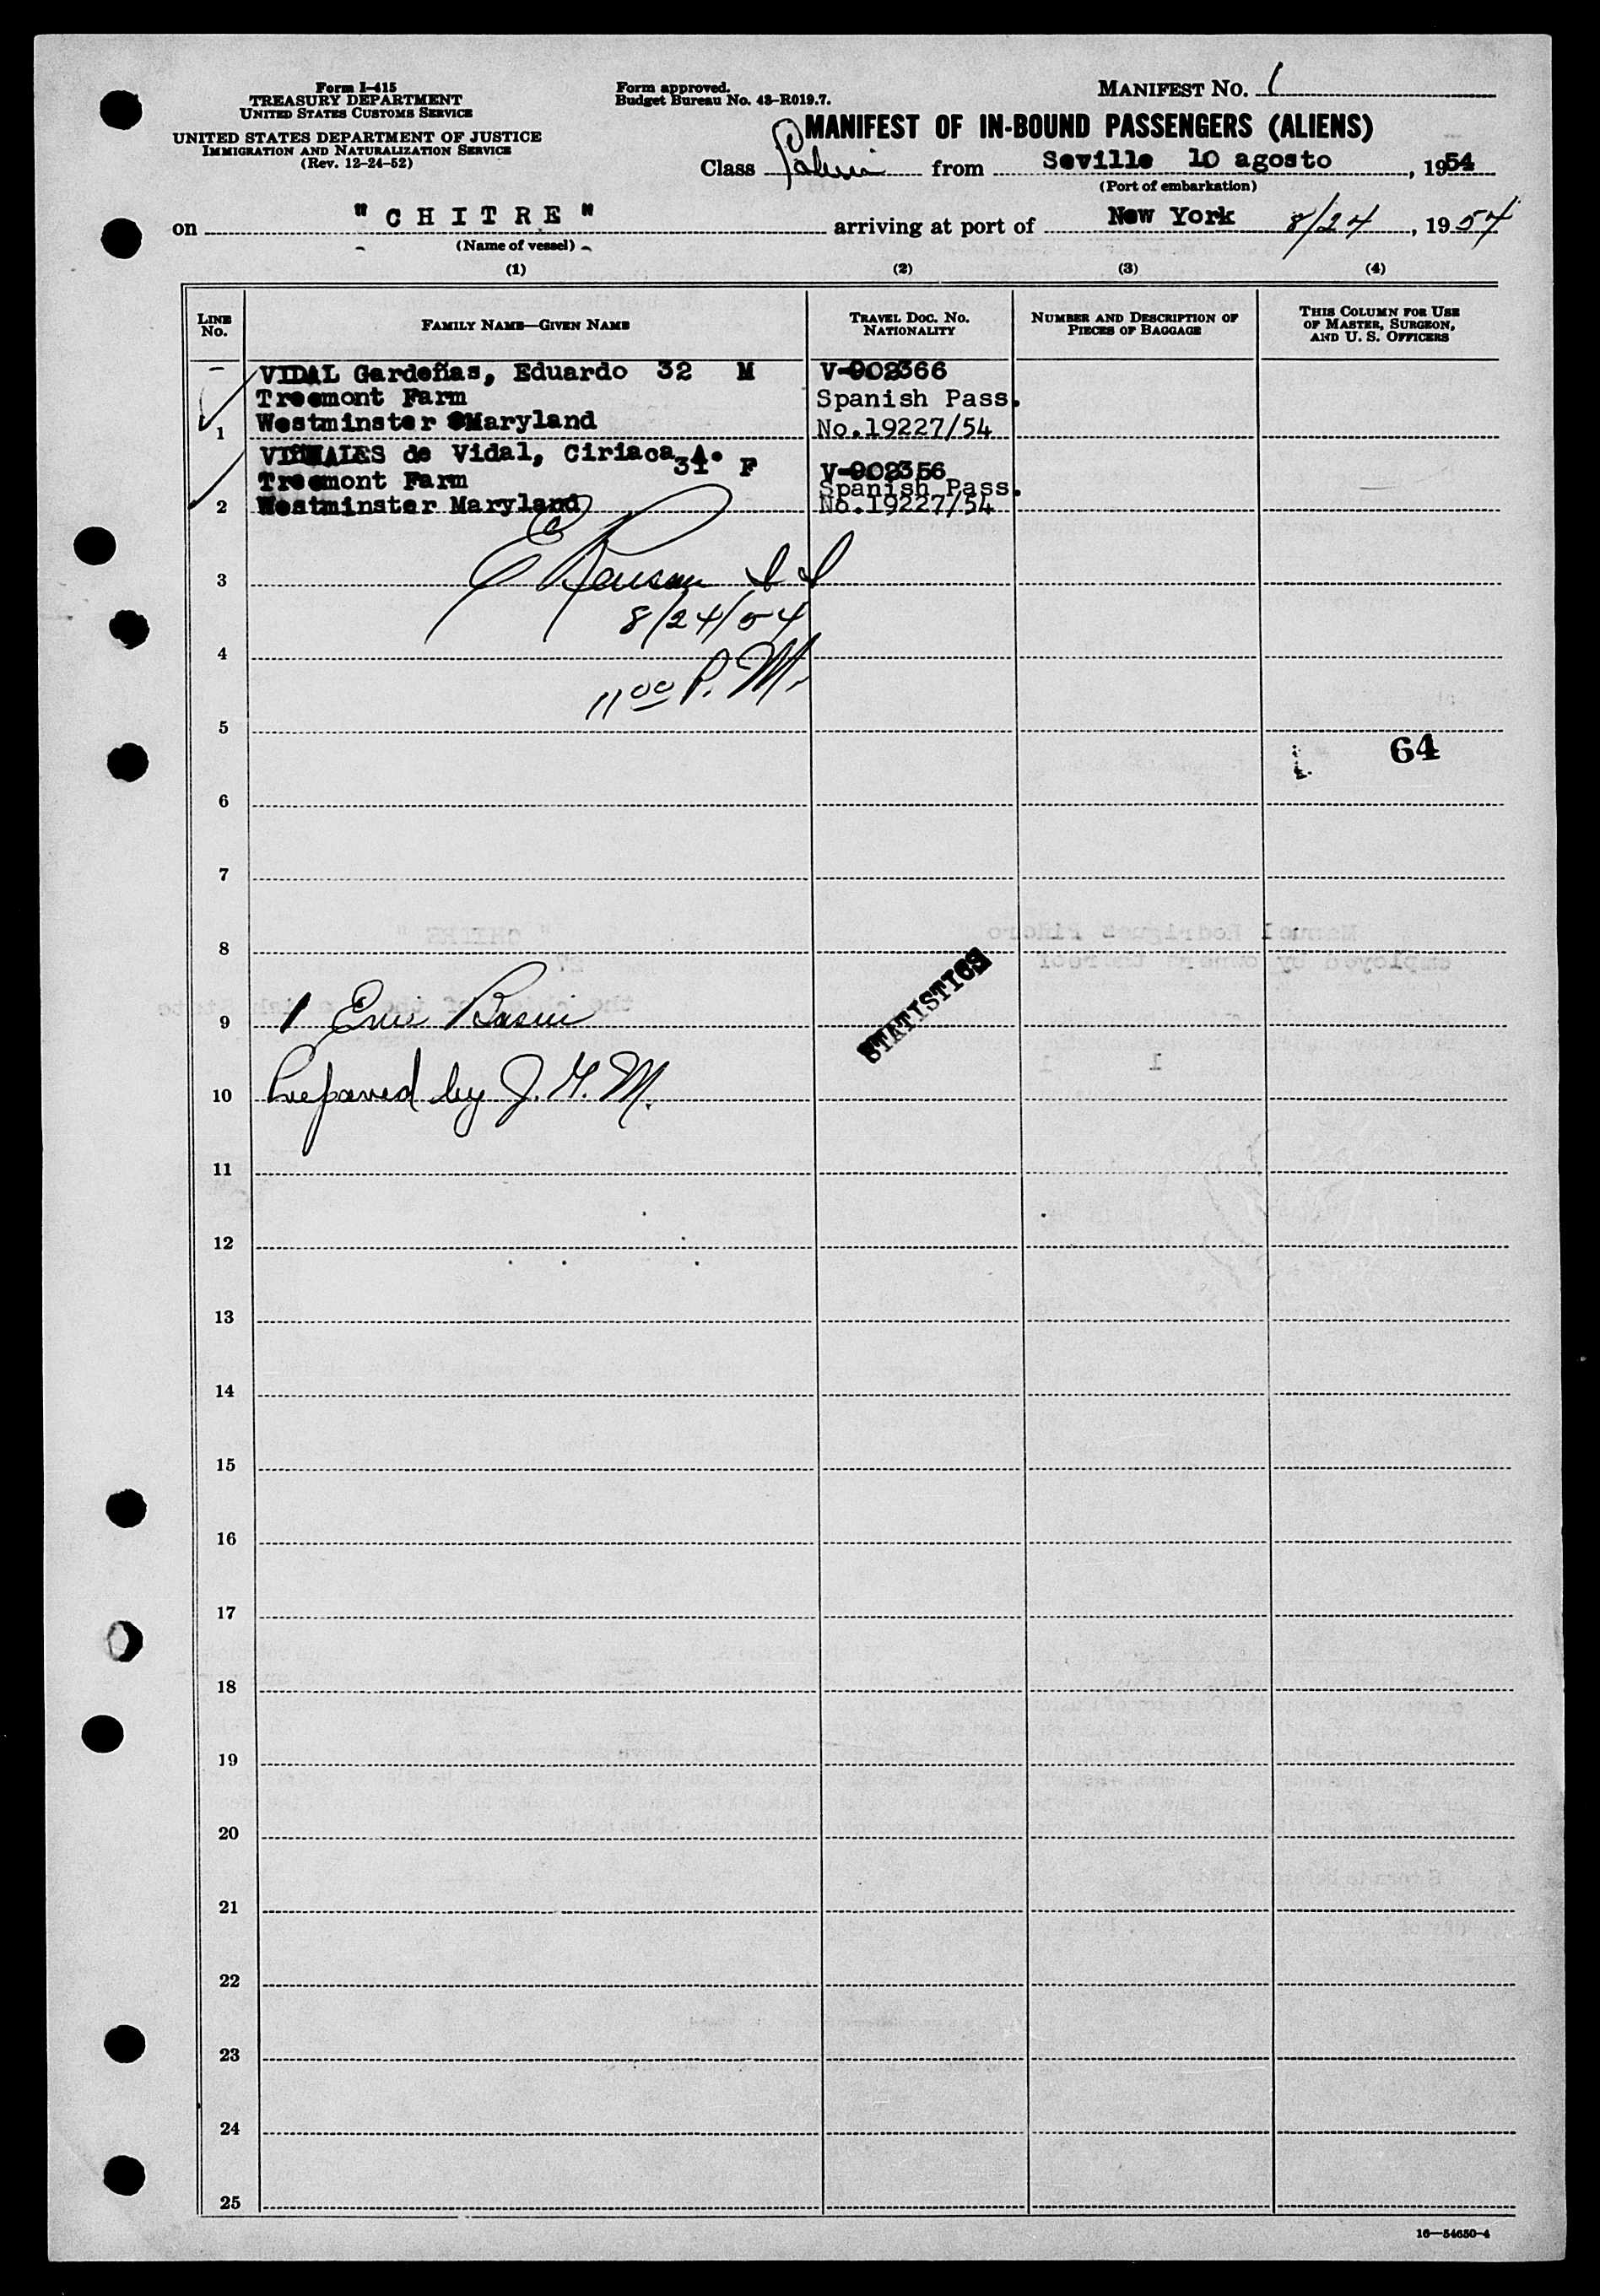 Form I-415
TREASURY DEPARTMENT
UNITED STATES CUSTOMS SERVICE
UNITED STATES DEPARTMENT OF JUSTICE
IMMIGRATION AND NATURALIZATION SERVICE
(Rev. 12-24-52)
Form approved.
Budget Bureau No. 43-R019.7.
MANIFEST No. 1
MANIFEST OF IN-BOUND PASSENGERS (ALIENS)
Class from Seville 10 agosto, 1954
(Port of embarkation)
on "CHITRE" arriving at port of New York 8/24, 1954
(Name of vessel)
(1) (2) (3) (4)
LINE No. FAMILY NAME—GIVEN NAME TRAVEL DOC. NO. NATIONALITY NUMBER AND DESCRIPTION OF PIECES OF BAGGAGE THIS COLUMN FOR USE OF MASTER, SURGEON, AND U. S. OFFICERS
VIDAL Gardeñas, Eduardo 32 M V-902366
Treemont Farm Spanish Pass.
1 Westminster Maryland No.19227/54
de Vidal, Ciriaca A. 31 F V-902356
Treemont Farm Spanish Pass.
2 Westminster Maryland No.19227/54
3
8/24/54
4
11 00 P.M.
5
64
6
7
8
STATISTICS
9 1
10 Prepared by J. M.
11
12
13
14
15
16
17
18
19
20
21
22
23
24
25
16—54650-4